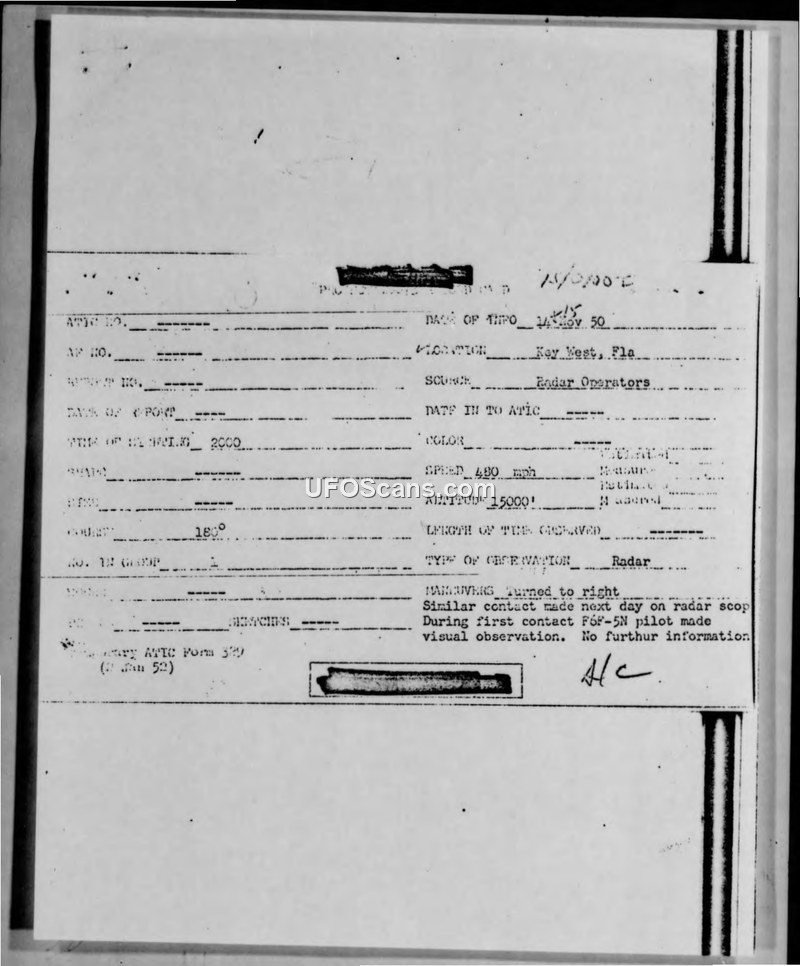 ATIC NO. ------- DATE OF INFO 14-15 Nov 50
AF NO. ------- LOCATION Key West, Fla
REPORT NO. ----- SOURCE Radar Operators
DATE OF REPORT ---- DATE IN TO ATIC -----
TIME OF SIGHTING 2000 COLOR -----
SHAPE ------- SPEED 480 mph
SIZE ----- ALTITUDE 15000'
COURSE 180° LENGTH OF TIME OBSERVED -------
NO. IN GROUP 1 TYPE OF OBSERVATION Radar
----- MANEUVERS Turned to right
Similar contact made next day on radar scop
----- SKETCHES ----- During first contact F6F-5N pilot made
visual observation. No furthur information
ATIC Form 329
(2 Jan 52)
A/C
UFOScans.com